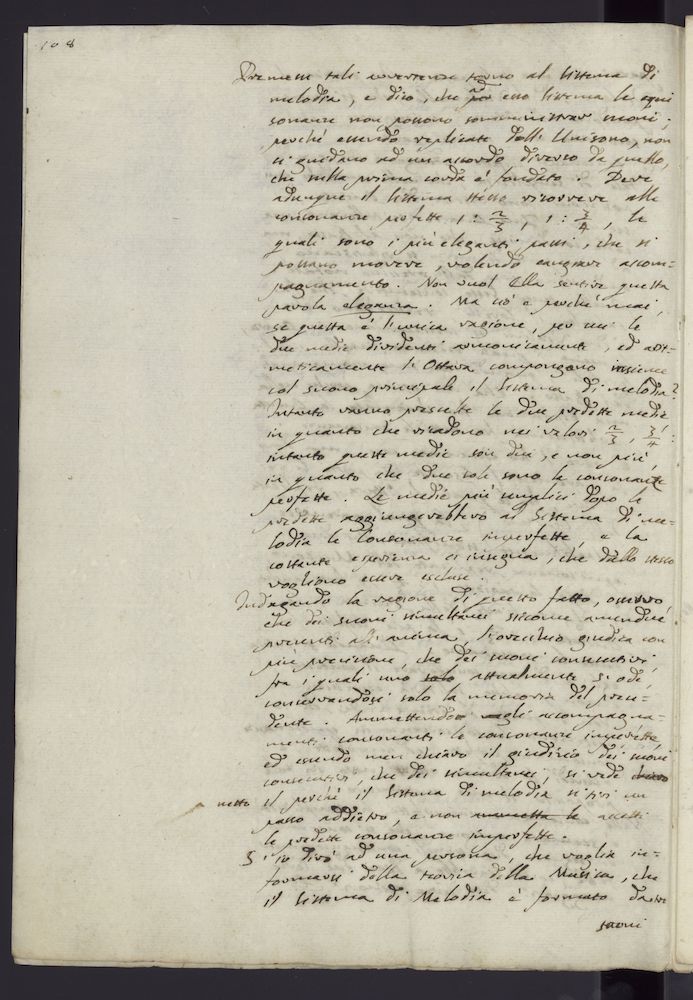 108
Premesse tali avvertenze torno al Sistema di
melodia, e dico, che ad esso Sistema le equi
sonanze non possono somministrar suoni;
perchè essendo replicate dell'Unisono, non
ci guidano ad un accordo diverso da quello,
che sulla prima corda è fondato. Deve
adunque il Sistema stesso ricorrere alle
consonanze perfette 1 : 2/3, 1 : 3/4, le
quali sono i più eleganti passi, che si
possano movere, volendo cangiare accom=
pagnamento. Non vuol Ella sentire questa
parola eleganza. Ma ciò è perchè mai,
se questa è l'unica ragione, per cui le
due medie dividenti armonicamente, ed arit=
meticamente l'Ottava compongono insieme
col suono principale il Sistema di melodia?
Intanto vanno prescelte le due predette medie
in quanto che ricadono nei valori 2/3, 3/4:
intanto queste medie son due, e non più,
in quanto che due sole sono le consonanze
perfette. Le medie più semplici dopo le
predette aggiungerebbero al Sistema di me=
lodia le Consonanze imperfette, e la
costante esperienza ci insegna, che dallo stesso
vogliono essere escluse.
Indagando la ragione di questo fatto, osservo
che dei suoni simultanei siccome amendue
presenti all'anima, l'orecchio giudica con
più precisione, che dei suoni consecutivi,
fra i quali uno solo attualmente si ode,
conservandosi solo la memoria del prece=
dente. Ammettendo negli accompagna=
menti consonanti le consonanze imperfette,
ed essendo men chiaro il giudizio dei suoni
consecutivi, che dei simultanei, si vede chiaro
netto il perchè il Sistema di melodia si tiri un
passo addietro, e non ammetta le accetti
le predette consonanze imperfette.
S'io dirò ad una persona, che voglia in=
formarsi della teoria della Musica, che
il Sistema di Melodia è formato da tre
suoni